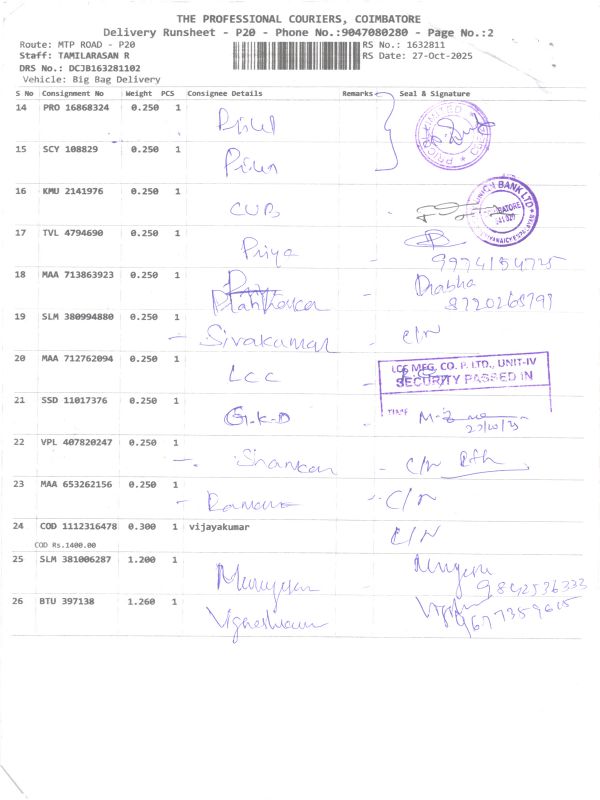 THE PROFESSIONAL COURIERS, COIMBATORE
Delivery Runsheet - P20 - Phone No.:9047080280 - Page No.:2
Route: MTP ROAD - P20 RS No.: 1632811
Staff: TAMILARASAN R RS Date: 27-Oct-2025
DRS No.: DCJB163281102
Vehicle: Big Bag Delivery
S No Consignment No Weight PCS Consignee Details Remarks Seal & Signature
14 PRO 16868324 0.250 1
15 SCY 108829 0.250 1
16 KMU 2141976 0.250 1 CUB
UNION BANK LTD
17 TVL 4794690 0.250 1 Priya
9974154725
18 MAA 713863923 0.250 1 Prabha
8720268799
19 SLM 380994880 0.250 1 - Sivakumar - C/N
20 MAA 712762094 0.250 1 LCC -
LCC MFG. CO. P. LTD., UNIT-IV
SECURITY PASSED IN
TIME
21 SSD 11017376 0.250 1 G.K.D
27/10/25
22 VPL 407820247 0.250 1 - Shankar - C/N
23 MAA 653262156 0.250 1 - Ramana - C/N
24 COD 1112316478 0.300 1 vijayakumar C/N
COD Rs.1400.00
25 SLM 381006287 1.200 1 Murugesan
9842536333
26 BTU 397138 1.260 1 Vigneshwaran
9677359615